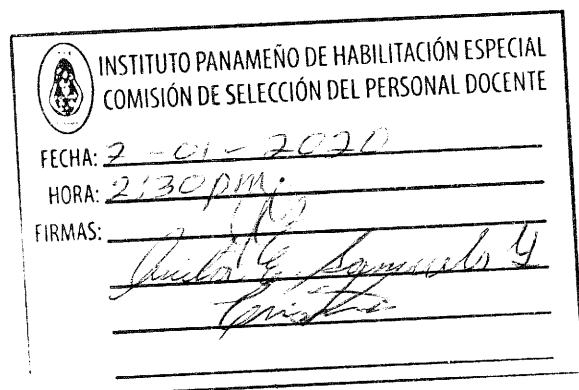 INSTITUTO PANAMEÑO DE HABILITACIÓN ESPECIAL
COMISIÓN DE SELECCIÓN DEL PERSONAL DOCENTE
FECHA: 2-01-2020
HORA: 2:30 pm.
FIRMAS: